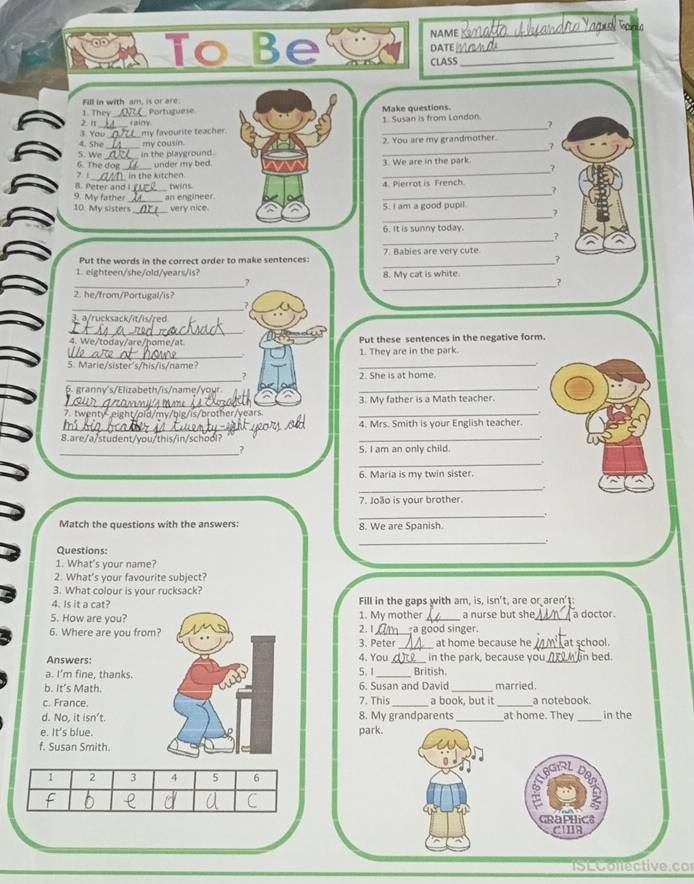 To Be
NAME Renatto
DATE
CLASS
Fill in with am, is or are:
1. They are Portuguese.
2. It is rainy.
3. You are my favourite teacher.
4. She is my cousin.
5. We are in the playground.
6. The dog is under my bed.
7. I am in the kitchen.
8. Peter and I are twins.
9. My father is an engineer.
10. My sisters are very nice.
Make questions.
1. Susan is from London.
?
2. You are my grandmother.
?
3. We are in the park.
?
4. Pierrot is French.
?
5. I am a good pupil.
?
6. It is sunny today.
?
7. Babies are very cute.
?
8. My cat is white.
?
Put the words in the correct order to make sentences:
1. eighteen/she/old/years/is?
?
2. he/from/Portugal/is?
?
3. a/rucksack/it/is/red.
It is a red rocksack.
4. We/today/are/home/at.
We are at home.
5. Marie/sister's/his/is/name?
?
6. granny's/Elizabeth/is/name/your.
your granny's name is
7. twenty-eight/old/my/big/is/brother/years.
big is twenty-eight years old
8.are/a/student/you/this/in/school?
?
Put these sentences in the negative form.
1. They are in the park.
.
2. She is at home.
.
3. My father is a Math teacher.
.
4. Mrs. Smith is your English teacher.
.
5. I am an only child.
.
6. Maria is my twin sister.
.
7. João is your brother.
.
8. We are Spanish.
.
Match the questions with the answers:
Questions:
1. What's your name?
2. What's your favourite subject?
3. What colour is your rucksack?
4. Is it a cat?
5. How are you?
6. Where are you from?
Answers:
a. I'm fine, thanks.
b. It's Math.
c. France.
d. No, it isn't.
e. It's blue.
f. Susan Smith.
1 2 3 4 5 6
f b e d a C
Fill in the gaps with am, is, isn't, are or aren't:
1. My mother is a nurse but she isn't a doctor.
2. I am a good singer.
3. Peter is at home because he isn't at school.
4. You are in the park, because you aren't in bed.
5. I British.
6. Susan and David married.
7. This a book, but it a notebook.
8. My grandparents at home. They in the
park.
THISTLEGIRL DESIGNS
GRAPHICS
CLUB
iSLCollective.co